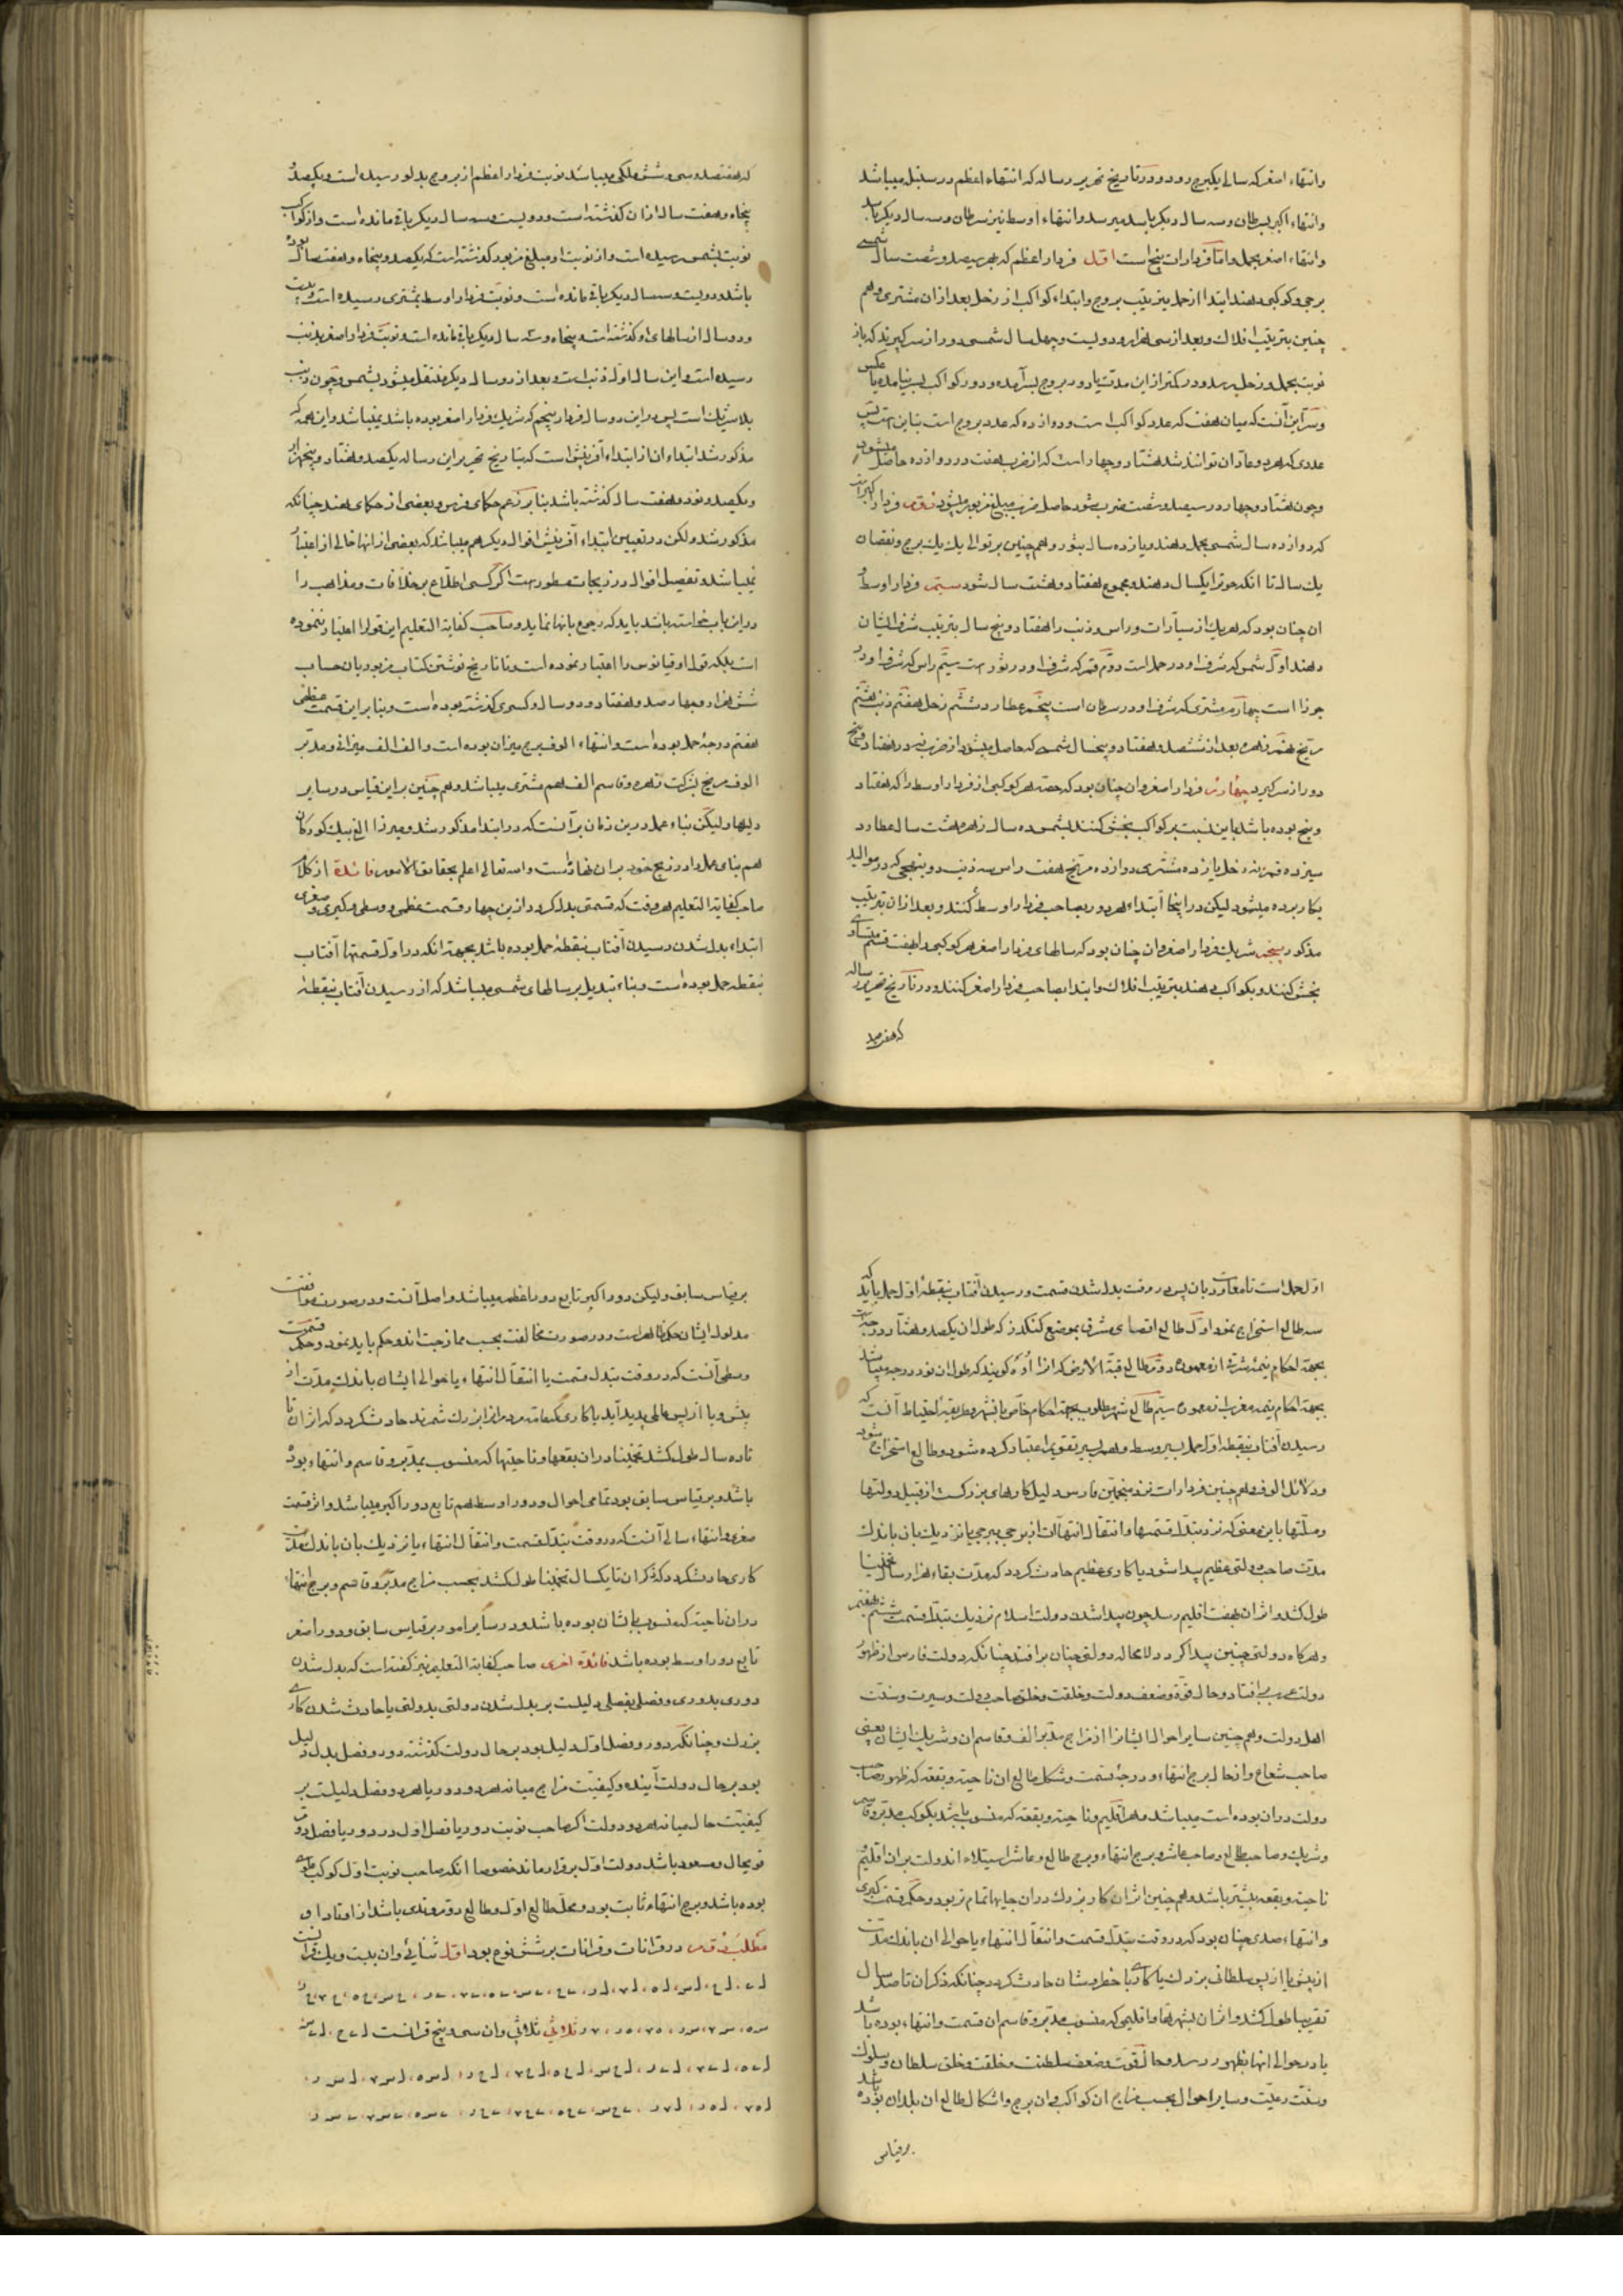 وانتهاء اصغر که سالی یکبرج رود و در تاریخ تحریر رساله که انتهاء اعظم در سنبله میباشد
وانتهاء اکبر بسرطان وسه سال دیکر باسد میرسد وانتهاء اوسط نیز سرطان وسه سال دیکر باسد
وانتهاء اصغر بحمل واما فردارات پنج است اول فردار اعظم که بهر سیصد وشصت سال شمسی
برجی وکوکبی دهند ابتدا از حمل بترتیب بروج وابتداء کواکب از زحل بعد ازان مشتری وهم
چنین بترتیب افلاک وبعد از سی هزار ودویست وچهل سال شمسی دور از سر کیرند که باز
نوبت بحمل وزحل رسد ودر کمتر از این مدت یا دور بروج بسر آمده ودور کواکب بسر نیامده یا عکس
وسر این آنست که میان هفت که عدد کواکب است ودوازده که عدد بروج است تباین است پس
عددی که هر دو عاد آن توانند شد هشتاد وچهار است که از ضرب هفت در دوازده حاصل میشود
وچون هشتاد وچهار در سیصد وشصت ضرب شود حاصل ضرب مبلغ مزبور میشود دوم فردار اکبر است
که دوازده سال شمسی بحمل دهند ویازده سال بثور وهم چنین بر توالی یک یک برج ونقصان
یک سال تا انکه حوت را یکسال دهند ومجموع هفتاد وهشت سال شود سیم فردار اوسط و
ان چنان بود که هریک از سیارات وراس وذنب را هفتاد وپنج سال بترتیب شرف ایشان
دهند اول شمس که شرف او در حمل است دوم قمر که شرف او در ثور است سیم راس که شرف او در
جوزا است چهارم مشتری که شرف او در سرطان است پنجم عطارد ششم زحل هفتم ذنب هشتم
مریخ نهم زهره بعد از ششصد وهفتاد وپنجسال شمسی که حاصل میشود از ضرب نه در هفتاد وپنج
دور از سر کیرد چهارم فردار اصغر وان چنان بود که حصه هر کوکبی از فردار اوسط را که هفتاد
وپنج بوده باشد باین نسبت بر کواکب بخش کنند شمس ده سال زهره هشت سال عطارد
سیزده قمر نه زحل یازده مشتری دوازده مریخ هفت راس سه ذنب دو بنهجی که در موالید
بکار برده میشود لیکن در اینجا ابتداء هر دور بصاحب فردار اوسط کنند وبعد ازان بترتیب
مذکور پنجم شریک فردار اصغر وان چنان بود که سالهای فردار اصغر هر کوکبی را بهفت قسم متساوی
بخش کنند وبکواکب دهند بترتیب افلاک وابتدا بصاحب فردار اصغر کنند ودر تاریخ تحریر رساله
که هفتصد
که هفتصد وسی وشش ملکی میباشد نوبت فردار اعظم از بروج بدلو رسیده است ویکصد و
پنجاه وهفت سال ازان کذشته است ودویست وسه سال دیکر باقی مانده است واز کواکب
نوبت بشمس رسیده است واز نوبت او مبلغ مزبور کذشته است که یکصد وپنجاه وهفت سال بوده
باشد ودویست وسه سال دیکر باقی مانده است ونوبت فردار اوسط بمشتری رسیده است وبیست
ودو سال از سالهای او کذشته است وپنجاه وسه سال دیکر باقی مانده است ونوبت فردار اصغر بذنب
رسیده است واین سال اول ذنب است وبعد از دو سال دیکر منتقل میشود بشمس وچون ذنب
بلاشریک است پس در این دو سال فردار پنجم که شریک فردار اصغر بوده باشد نمیباشد واین همه که
مذکور شد ابتداء ان از ابتداء آفرینش است که بتاریخ تحریر این رساله یکصد وهفتاد وپنجهزار
ویکصد ونود وهفت سال کذشته باشد بنا بر زعم حکمای فرس وبعضی از حکمای هند چنانکه
مذکور شد ولکن در تعیین ابتداء آفرینش اقوال دیکر هم میباشد که بعضی از انها خالی از اعتبار
نمیباشد وتفصیل اقوال در زیجات مسطور است اکر کسی اطلاع بر خلافات ومذاهب را
در این باب خواسته باشد باید که رجوع بانها نماید وصاحب کفایة التعلیم این قول را اعتبار ننموده
است بلکه قول اوقیانوس را اعتبار نموده است وتا تاریخ نوشتن کتاب مزبور بان حساب
شش هزار وچهار صد وهفتاد ودو سال وکسری کذشته بوده است وبنا بر این قسمت عظمی
هفتم درجه حمل بوده است وانتهاء الوف ببرج میزان بوده است والف الف میزانی ومدبر
الوف مریخ بشرکت زهره وقاسم الف هم مشتری میباشد وهم چنین بر این قیاس در سایر
دلیلها ولیکن بناء عمل درین زمان بر آنست که در ابتدا مذکور شد ومیرزا الغ بیک کورکان
هم بنای عمل را در زیج خود بر ان نهاده است والله تعالی اعلم بحقائق الامور فائدة از کلام
صاحب کفایة التعلیم هر وقت که قسمتی بدل کردد ازین چهار قسمت عظمی ووسطی وکبری وصغری
ابتداء بدل شدن رسیدن آفتاب بنقطه حمل بوده باشد بجهة انکه در اول قسمتها آفتاب
بنقطه حمل بوده است وبناء تبدیل بر سالهای شمسی میباشد که از رسیدن آفتاب بنقطه
اول حمل است تا معاودت بان پس در وقت بدل شدن قسمت ورسیدن آفتاب بنقطه اول حمل باید که
سه طالع استخراج نمود اول طالع اقصای مشرق بموضع کنکدز که طول ان یکصد وهشتاد درجه است
بجهة احکام نیمه شرقی از معموره دوم طالع قبة الارض که انرا اوزه کویند که طول ان نود درجه میباشد
بجهة احکام نیمه مغرب از معموره سیم طالع شهر مطلوب بجهة احکام خاص بانشهر وطریقه احتیاط آنست که
رسیدن آفتاب بنقطه اول حمل بسیر وسط وهم بسیر تقویم اعتبار کرده شود وطالع استخراج شود
ودلائل الوف وهم چنین فردارات نزد منجمین فارس دلیل کارهای بزرکست از قبیل دولتها
وملتها باین معنی که نزد تبدل قسمتها وانتقال انتهاآت از برجی ببرجی یا نزدیک بان باندک
مدت صاحب دولتی عظیم پیدا شود یا کاری عظیم حادث کردد که مدت بقاء هزار سال تخمینا
طول کشد واثر ان بهفت اقلیم رسد چون پیدا شدن دولت اسلام نزدیک تبدل قسمت ششم بهفتم
وهرکاه دولتی چنین پیدا کردد لامحاله دولتی چنان برافتد چنانکه دولت فارس از ظهور
دولت عرب برافتاد وحال قوة وضعف دولت وخلقت وخلق صاحب دولت وسیرت وسنت
اهل دولت وهم چنین سایر احوال ایشانرا از مزاج مدبر الف وقاسم ان وشریک ایشان یعنی
صاحب شعاع واز حال برج انتهاء ودرجه قسمت وشکل طالع ان ناحیت وبقعه که ظهور صاحب
دولت دران بوده است میباشد وهر اقلیم وناحیت وبقعه که منسوب باشد بکوکب مدبر وقاسم
وشریک وصاحب طالع وصاحب عاشر وبرج انتهاء وبرج طالع وعاشر استیلاء اندولت بران اقلیم و
ناحیت وبقعه بیشتر باشد وهم چنین اثر ان کار بزرک دران جایها تمام تر بود وحکم قسمت کبری
وانتهاء صدی چنان بود که در وقت تبدل قسمت وانتقال انتهاء یا حوالی ان باندک مدت
از پیش یا از پس سلطانی بزرک یا کاری با خطر وشان حادث کردد چنانکه ذکر ان تا صد سال
تقریبا طول کشد واثر ان بشهرها واقلیمی که منسوب بمدبر وقاسم ان قسمت وانتهاء بوده باشد
یا در حوالی انها بظهور رسد وحال قوت وضعف سلطنت وخلقت وخلق سلطان وسلوک
وسنت رعیت وسایر احوال بحسب مزاج ان کواکب وان برج واشکال طالع ان بلدان بوده باشد
بر قیاس
بر قیاس سابق ولیکن دور اکبر تابع دور اعظم میباشد واصل آنست ودر صورت موافقت
مدلول ایشان حکم ظاهر است ودر صورت مخالفت بحسب ممازجت اندو حکم باید نمود وحکم قسمت
وسطی آنست که در وقت تبدل قسمت یا انتقال انتهاء یا حوالی ایشان باندک مدت از
پیش ویا از پس عالمی پدید آید یا کاری که عامه مردم انرا بزرک شمرند حادث کردد که اثر ان تا
تا ده سال طول کشد تخمینا دران بقعها وناحیتها که منسوب بمدبر وقاسم وانتهاء بوده
باشد وبر قیاس سابق بود تمامی احوال ودور اوسط هم تابع دور اکبر میباشد واثر قسمت
صغری وانتهاء سالی آنست که در وقت تبدل قسمت وانتقال انتهاء یا نزدیک بان باندک مدت
کاری حادث کردد که ذکر ان تا یکسال تخمینا طول کشد بحسب مزاج مدبر وقاسم وبرج انتهاء
دران ناحیت که منسوب بایشان بوده باشد ودر سایر امور بر قیاس سابق ودور اصغر
تابع دور اوسط بوده باشد فائدة اخری صاحب کفایة التعلیم نیز کفته است که بدل شدن
دوری بدوری وفصلی بفصلی دلیلست بر بدل شدن دولتی بدولتی یا حادث شدن کاری
بزرک وچنانکه دور وفصل اول دلیل بود بر حال دولت کذشته دور وفصل بدل دلیل
بود بر حال دولت آینده وکیفیت مزاج میانه هر دو دور یا هر دو فصل دلیلست بر
کیفیت حال میانه هر دو دولت اکر صاحب نوبت دور یا فصل اول در دور یا فصل دوم
قویحال ومسعود باشد دولت اول برقرار ماند خصوصا انکه صاحب نوبت اول کوکب علوی
بوده باشد وبرج انتهاء ثابت بود ومحل طالع اول وطالع دوم وتدی باشد از اوتاد او
مطلب دوم در قرانات وقرانات بر شش نوع بود اول ثنائی وان بیست ویک قرانست
ثلاثی وان سی وپنج قرانست